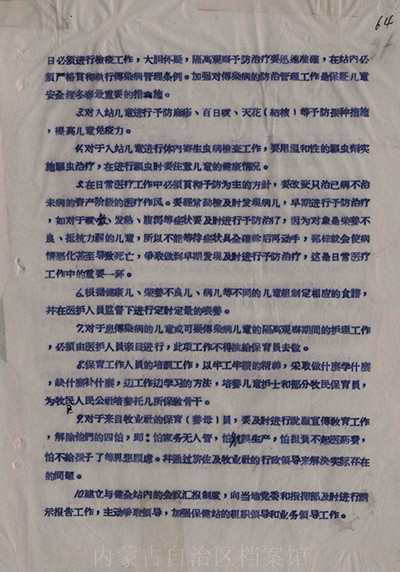 64
日必须进行检疫工作，大胆怀疑，隔离观察予防治疗要迅速准确，在站内必
须严格贯彻执行傳染病管理条例。加强对傳染病的防治管理工作是保証儿童
安全渡冬春最重要的措施。
3.对入站儿童进行予防麻疹、百日咳、天花（結核）等予防接种措施
，提高儿童免疫力。
4.对于入站儿童进行体內寄生虫病检查工作，要用溫和性的驅虫剂实
施驅虫治疗，在进行驅虫时要注意儿童的健康情况。
5.在日常医疗工作中必须貫彻予防为主的方針，要改变只治已病不治
未病的資产阶級的医疗作风。要經常勤检及时发現病儿，早期进行予防治疗
，如对于咳嗽、发热、腹泻等症状要及时进行予防治疗，因为对象是荣养不
良、抵抗力弱的儿童，所以不能等待症状具全確診后再动手，那样就会使病
情恶化甚至导致死亡，爭取做到早期发現及时进行予防治疗，这是日常医疗
工作中的重要一环。
6.根据健康儿、荣养不良儿、病儿等不同的儿童組制定相应的食譜，
并在医护人員监督下进行定时定量的喂养。
7.对于患傳染病的儿童或可疑傳染病儿童的隔离观察期間的护理工作
，必须由医护人員亲自进行，此項工作不得推給保育員去做。
8.保育工作人員的培訓工作，以半工半讀的精神，采取做什麼学什麼
，缺什麼补什麼，边工作边学习的方法，培养儿童护士和部分牧民保育員，
为牧民人民公社培养托儿所保教骨干。
9.对于来自牧业社的保育（养母）員，要及时进行說服宣傳教育工作
，解除他們的四怕，即：怕家务无人管，怕躭誤生产，怕报負不起医药費，
怕不給孩子了等思想顾虑。并通过旗佐及牧业社的行政領导来解决实际存在
的問題。
10.建立与健全站內的会議汇报制度，向当地党委和指揮部及时进行請
示报告工作，主动爭取領导，加强保健站的組織領导和业务領导工作。
内蒙古自治区档案馆